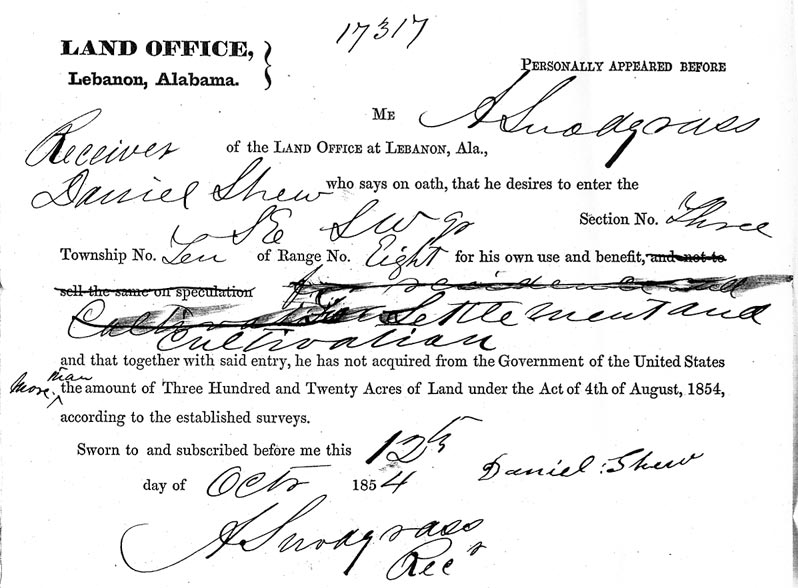 17317
LAND OFFICE,
Lebanon, Alabama.
PERSONALLY APPEARED BEFORE
ME A Snodgrass
Receiver of the LAND OFFICE AT LEBANON, Ala.,
Daniel Shew who says on oath, that he desires to enter the
SE SW qr Section No. Three
Township No. Ten of Range No. Eight for his own use and benefit, and not to
sell the same on speculation for residence and
Cultivation for Settlement and
Cultivation
and that together with said entry, he has not acquired from the Government of the United States
more than the amount of Three Hundred and Twenty Acres of Land under the Act of 4th of August, 1854,
according to the established surveys.
Sworn to and subscribed before me this 12th
day of Octr 1854 Daniel Shew
A Snodgrass
Recr